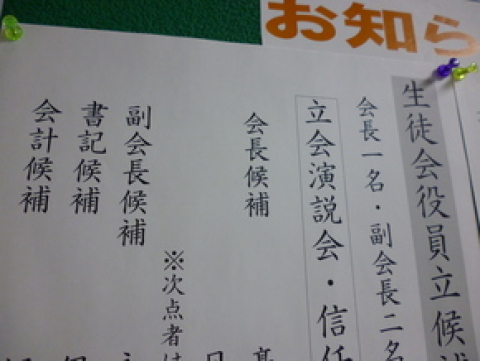 お知ら
生徒会役員立候補
会長一名・副会長二名
立会演説会・信任
会長候補
※次点者は
副会長候補
書記候補
会計候補